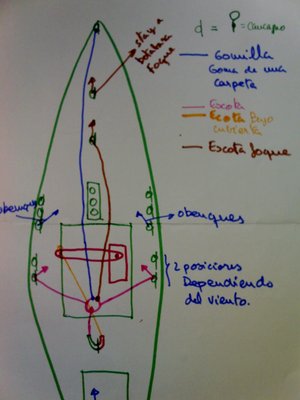 stay a
botabara
foque
d = = Cancamo
Gomilla
Goma de una
carpeta
Escota
Ecota Bajo
cubierta
Escota foque
obenques
obenques
2 posiciones
Dependiendo
del viento.